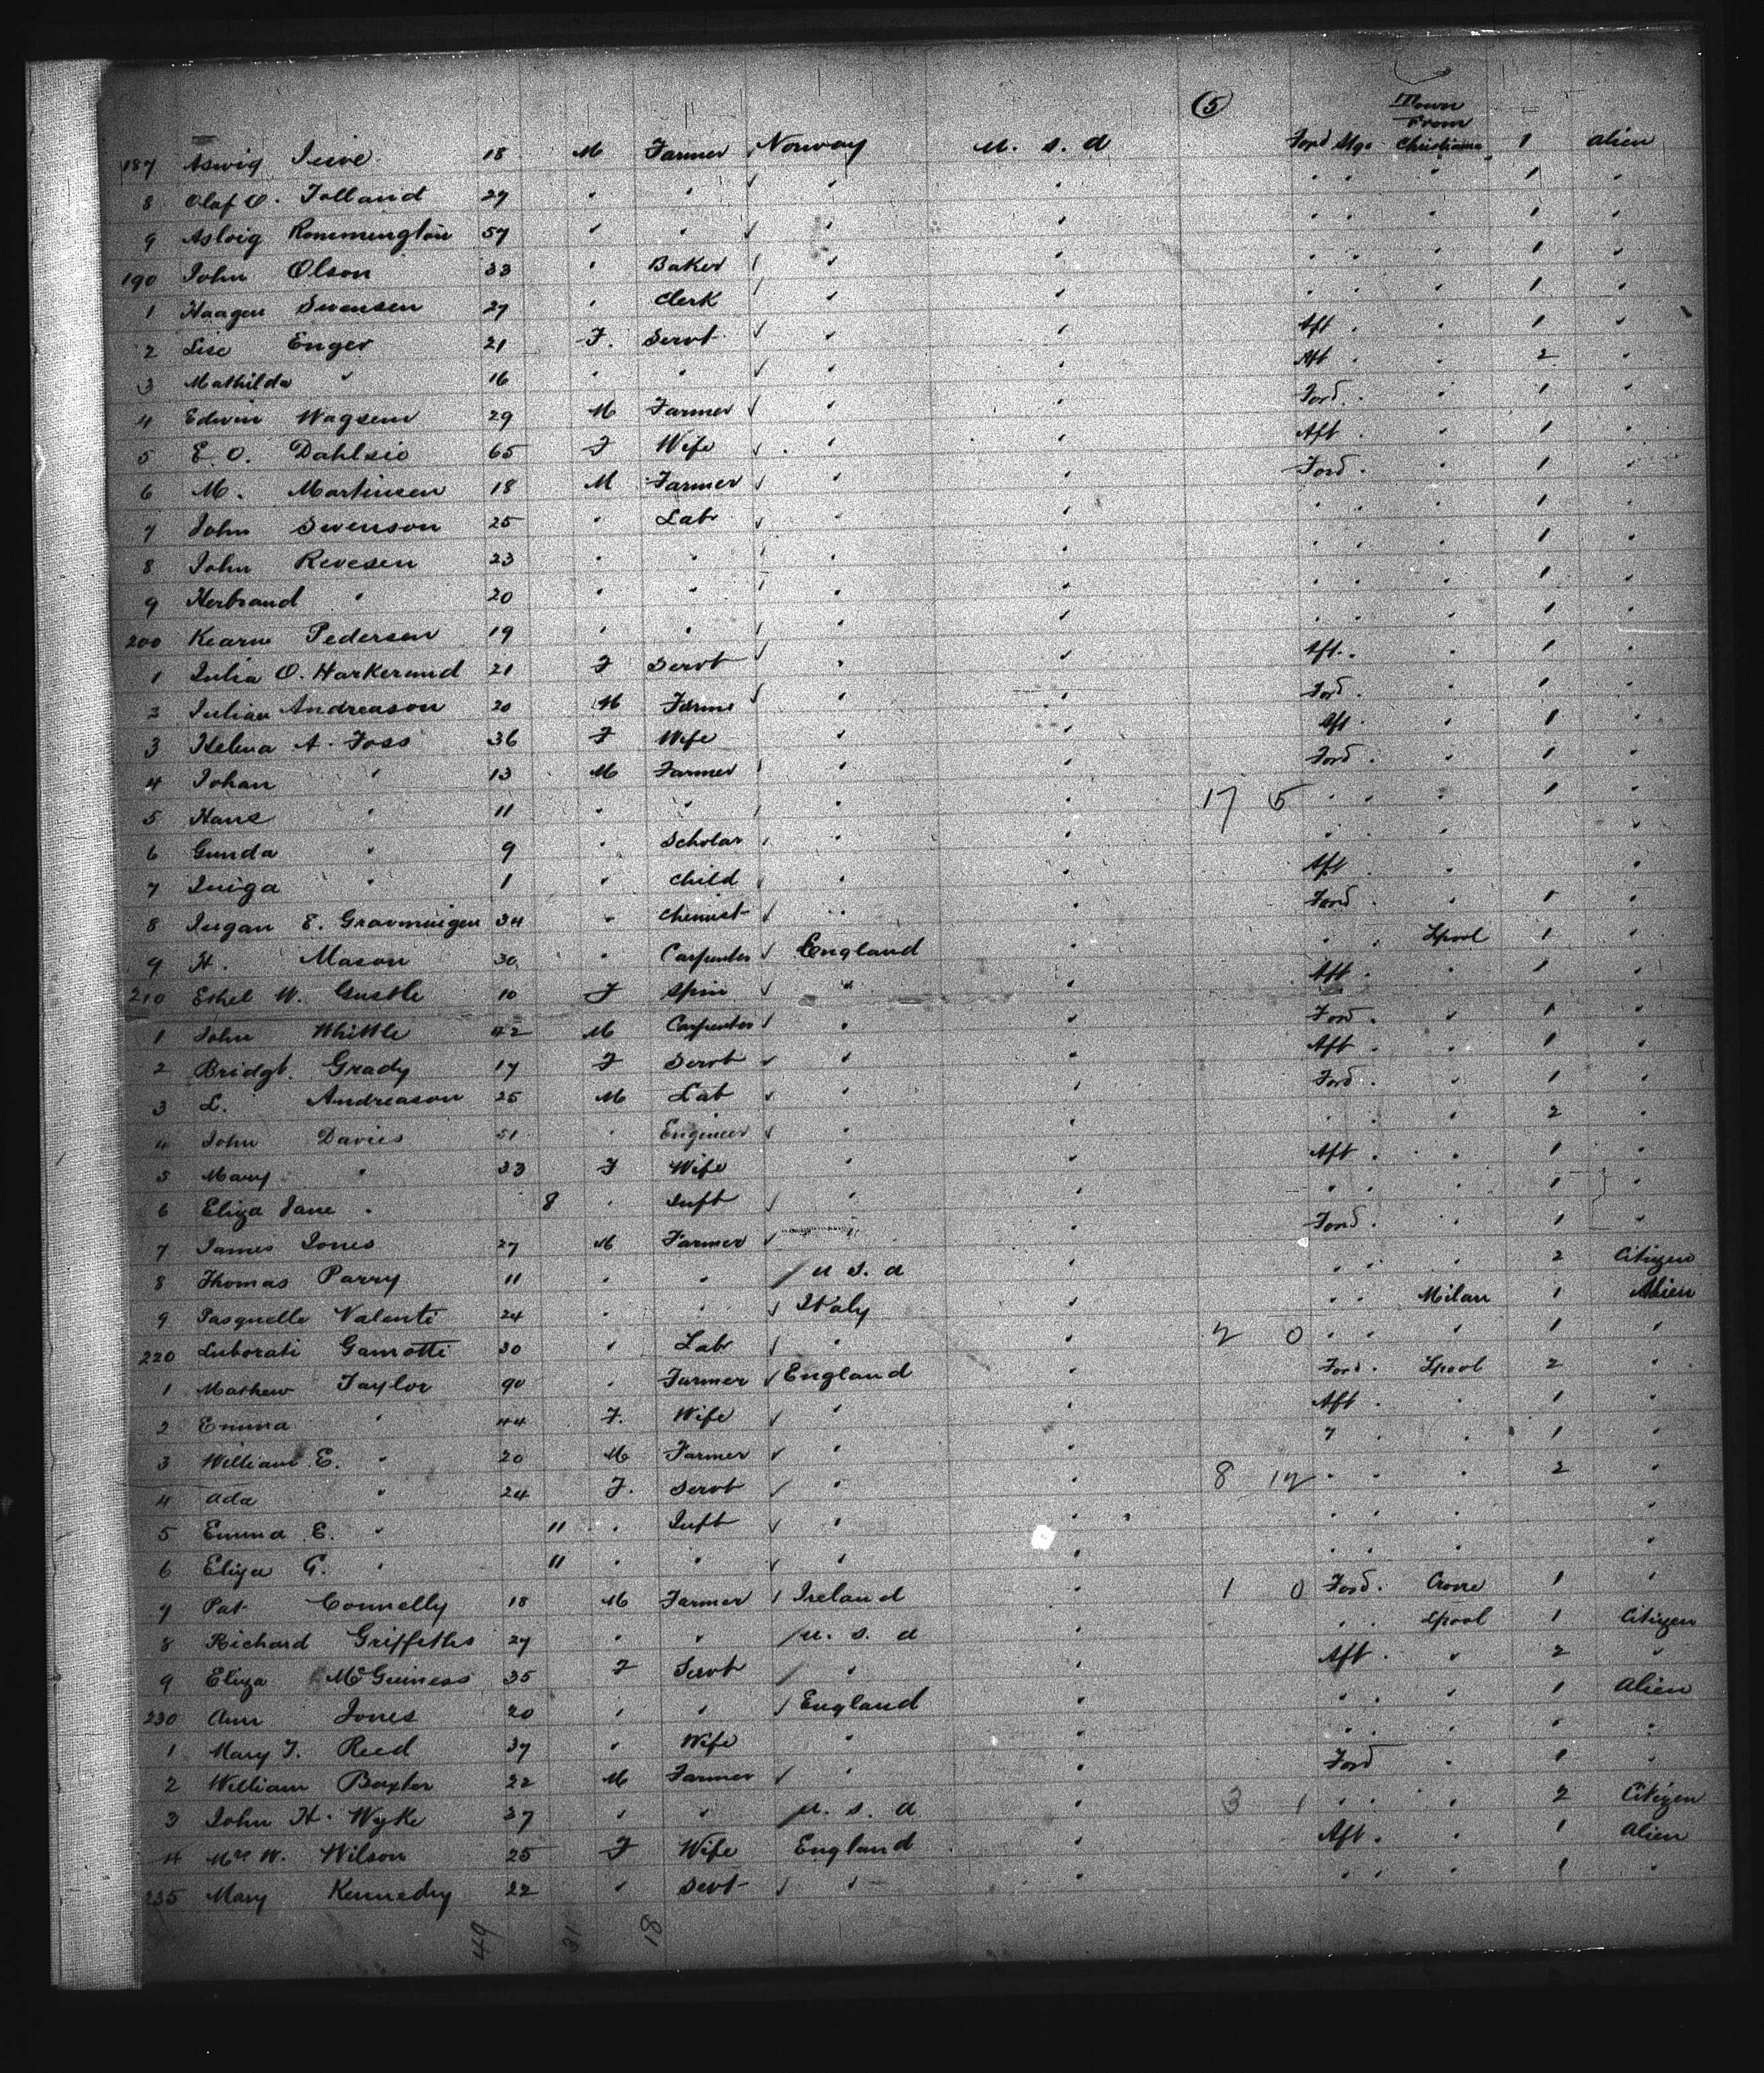 (5)
Town
From
187 Aswig Juve 18 M Farmer Norway U. S. A Ford Mgs Christiania 1 Alien
8 Olaf O. Tolland 27 " " " " " " " 1 "
9 Asloig Rommington 57 " " " " " " " 1 "
190 John Olson 33 " Baker " " " " " 1 "
1 Haagen Swensen 27 " Clerk " " " " " 1 "
2 Lise Enger 21 F. Servt " " Aft " " 1 "
3 Mathilda " 16 " " " " Aft " " 2 "
4 Edwin Wagsem 29 M Farmer " " Ford " " 1 "
5 E. O. Dahlsie 65 F Wife " " Aft " " 1 "
6 M. Martinsen 18 M Farmer " " Ford " " 1 "
7 John Swenson 25 " Labr " " " " " 1 "
8 John Revesen 23 " " " " " " " 1 "
9 Herbrand " 20 " " " " " " " 1 "
200 Kearn Pedersen 19 " " " " " " " 1 "
1 Julia O. Harkerund 21 F Servt " " Aft " " 1 "
2 Julian Andreason 20 M Farme " " Ford " " 1 "
3 Helena A. Foss 36 F Wife " " Aft " " 1 "
4 Johan " 13 M Farmer " " Ford " " 1 "
5 Hans " 11 " " " " 17 5 " " " 1 "
6 Gunda " 9 " Scholar " " " " " "
7 Iniga " 1 " Child " " Aft " "
8 Ingan E. 34 " Chemist " " Ford " " 1 "
9 H. Mason 30 " Carpenter England " " " Lpool 1 "
210 Ethel W. Gustle 10 F Spin " " Aft " " 1 "
1 John Whittle 42 M Carpenter " " Ford " " 1 "
2 Bridgt. Grady 17 F Servt " " Aft " " 1 "
3 L. Andreason 25 M Lab " " Ford " " 1 "
4 John Davies 51 " Engineer " " " " " 2 "
5 Mary " 33 F Wife " " Aft " " 1 "
6 Eliza Jane " 8 " Inft " " " " " 1 "
7 James Jones 27 M Farmer " " Ford " " 1 "
8 Thomas Parry 11 " " U S. A " " " 2 Citizen
9 Pasquelle Valenti 24 " " Italy " " " Milan 1 Alien
220 Luborati Gamotti 30 " Labr " " 2 0 " " " 1 "
1 Mathew Taylor 90 " Farmer England " Ford " Lpool 2 "
2 Emma " 44 F. Wife " " Aft " " 1 "
3 William E. " 20 M Farmer " " " " " 1 "
4 Ada " 24 F. Servt " " 8 12 " " " 2 "
5 Emma E. " 11 " Inft " " " " " "
6 Eliza G. " 11 " " " " " " " "
7 Pat Connelly 18 M Farmer Ireland " 1 0 Ford " 1 "
8 Richard Griffiths 27 " " U. S. A " " " Lpool 1 Citizen
9 Eliza McGuiness 35 F Servt " " Aft " " 2 "
230 Ann Jones 20 " " England " " " " 1 Alien
1 Mary J. Reed 37 " Wife " " " " " " "
2 William Baxter 22 M Farmer " " Ford " 1 "
3 John H. Wyke 37 " " U. S. A " 3 1 " " " 2 Citizen
4 Mrs W. Wilson 25 F Wife England " Aft " " 1 Alien
235 Mary Kennedy 22 " Servt " " " " 1 "
49 31 18